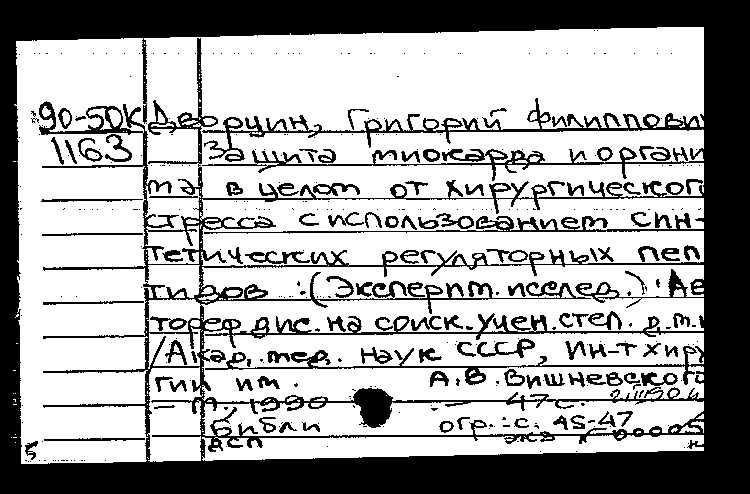 90-5ДК Дворцин, Григорий Филиппови
1163 Защита миокарда и органи
ма в целом от хирургическог
стресса с использованием син-
тетических регуляторных пеп
тидов : (Эксперим. исслед.) : Ав
тореф. дис. на соиск. учен. степ. д.м.н
/Акад. мед. наук СССР, Ин-т хиру
гии им. А.В. Вишневского
– М., 1990 . – 47 с.
Библи огр.: с. 45-47
ДСП экз
5